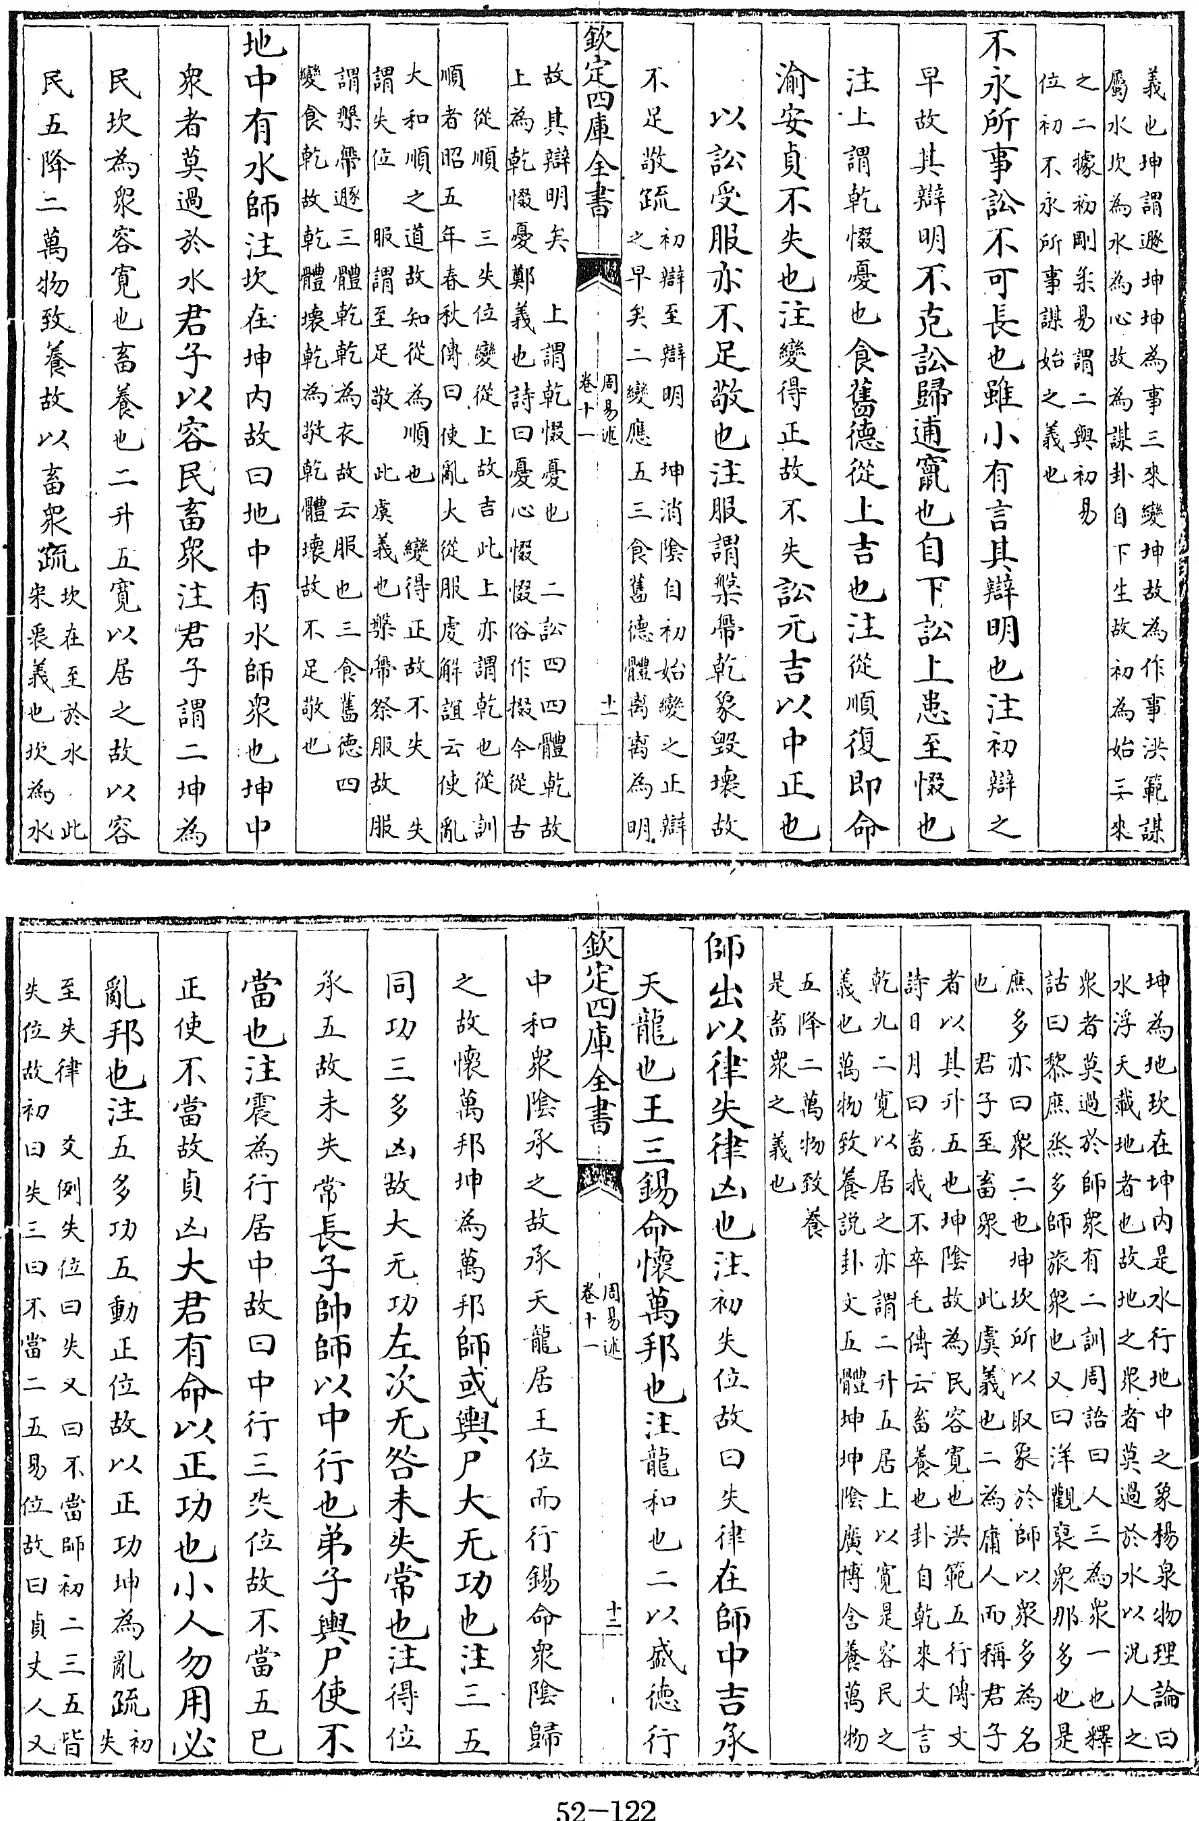 義也坤謂遯坤坤為事三來變坤故為作事洪範謀
屬水坎為水為心故為謀卦自下生故初為始三來
之二據初剛柔易謂二與初易
位初不永所事謀始之義也
不永所事訟不可長也雖小有言其辯明也注初辯之
早故其辯明不克訟歸逋竄也自下訟上患至惙也
注上謂乾惙憂也食舊德從上吉也注從順復即命
渝安貞不失也注變得正故不失訟元吉以中正也
以訟受服亦不足敬也注服謂鞶帶乾象毀壞故
不足敬疏初辯至辯明 坤消陰自初始變之正辯
之早矣二變應五三食舊德體离离為明
欽定四庫全書
周易述
卷十一
十一
故其辯明矣 上謂乾惙憂也 二訟四四體乾故
上為乾惙憂鄭義也詩曰憂心惙惙俗作掇今從古
從順 三失位變從上故吉此上亦謂乾也從訓
順者昭五年春秋傳曰使亂大從服虔解誼云使亂
大和順之道故知從為順也 變得正故不失 失
謂失位 服謂至足敬 此虞義也鞶帶祭服故服
謂鞶帶遯三體乾乾為衣故云服也三食舊德四
變食乾故乾體壞乾為敬乾體壞故不足敬也
地中有水師注坎在坤内故曰地中有水師衆也坤中
衆者莫過於水君子以容民畜衆注君子謂二坤為
民坎為衆容寛也畜養也二升五寛以居之故以容
民五降二萬物致養故以畜衆疏坎在至於水 此
宋衷義也坎為水
坤為地坎在坤内是水行地中之象楊泉物理論曰
水浮天載地者也故地之衆者莫過於水以況人之
衆者莫過於師衆有二訓周語曰人三為衆一也釋
詁曰黎庶烝多師旅衆也又曰洋觀裒衆那多也是
庶多亦曰衆二也坤坎所以取象於師以衆多為名
也 君子至畜衆 此虞義也二為庸人而稱君子
者以其升五也坤陰故為民容寛也洪範五行傳文
詩日月曰畜我不卒毛傳云畜養也卦自乾來文言
乾九二寛以居之亦謂二升五居上以寛是容民之
義也萬物致養説卦文五體坤坤陰廣博含養萬物
五降二萬物致養
是畜衆之義也
師出以律失律凶也注初失位故曰失律在師中吉承
天龍也王三錫命懷萬邦也注龍和也二以盛德行
中和衆陰承之故承天龍居王位而行錫命衆陰歸
欽定四庫全書
周易述
卷十一
十二
之故懷萬邦坤為萬邦師或輿尸大无功也注三五
同功三多凶故大无功左次无咎未失常也注得位
承五故未失常長子帥師以中行也弟子輿尸使不
當也注震為行居中故曰中行三失位故不當五已
正使不當故貞凶大君有命以正功也小人勿用必
亂邦也注五多功五動正位故以正功坤為亂疏初
失
至失律 爻例失位曰失又曰不當師初二三五皆
失位故初曰失三曰不當二五易位故曰貞丈人又
52-122